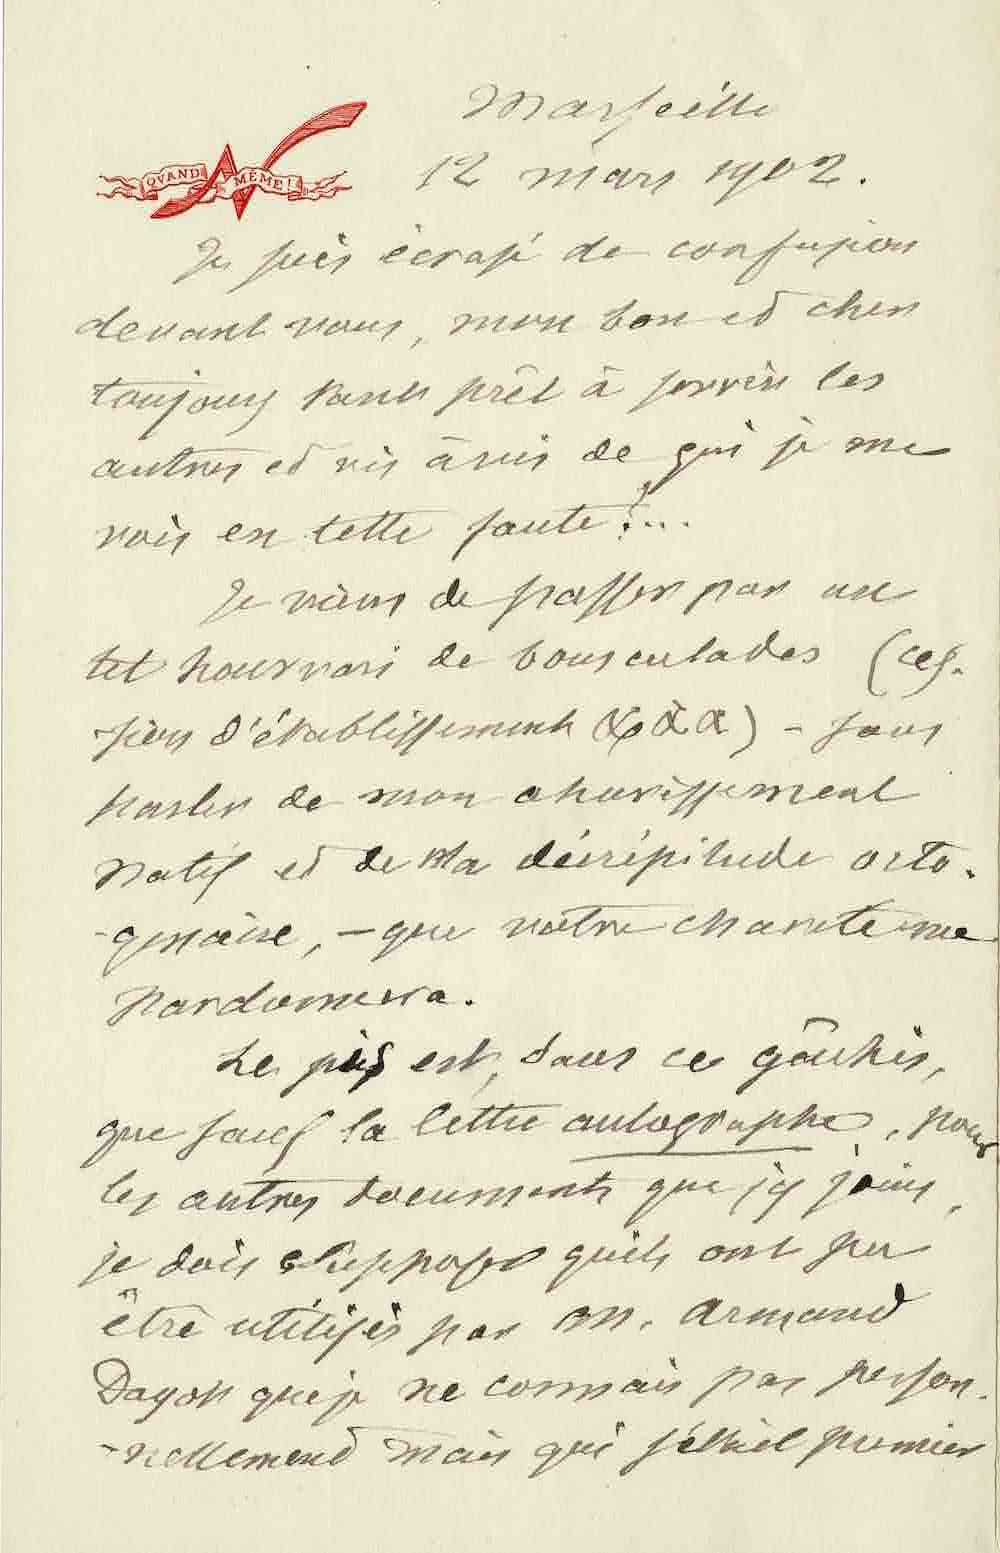 QUAND MÊME!
Marseille
12 mars 1902.
Je suis écrasé de confusion
devant vous, mon bon et cher
toujours prêt à servir les
autres et vis à vis de qui je me
vois en telle faute!...
Je viens de passer par un
tel hourvari de bousculades (ces-
-sion d'établissement &a &a) - sans
parler de mon ahurissement
natif et de ma décrépitude octo-
-génaire, - que votre charité me
pardonnera.
Le pis est, dans ce gâchis,
que sauf la lettre autographe, pour
les autres documents que j'y joins,
je dois supposer qu'ils ont pu
être utilisés par M. Armand
Dayot que je ne connais pas person-
-nellement mais qui s'était premier